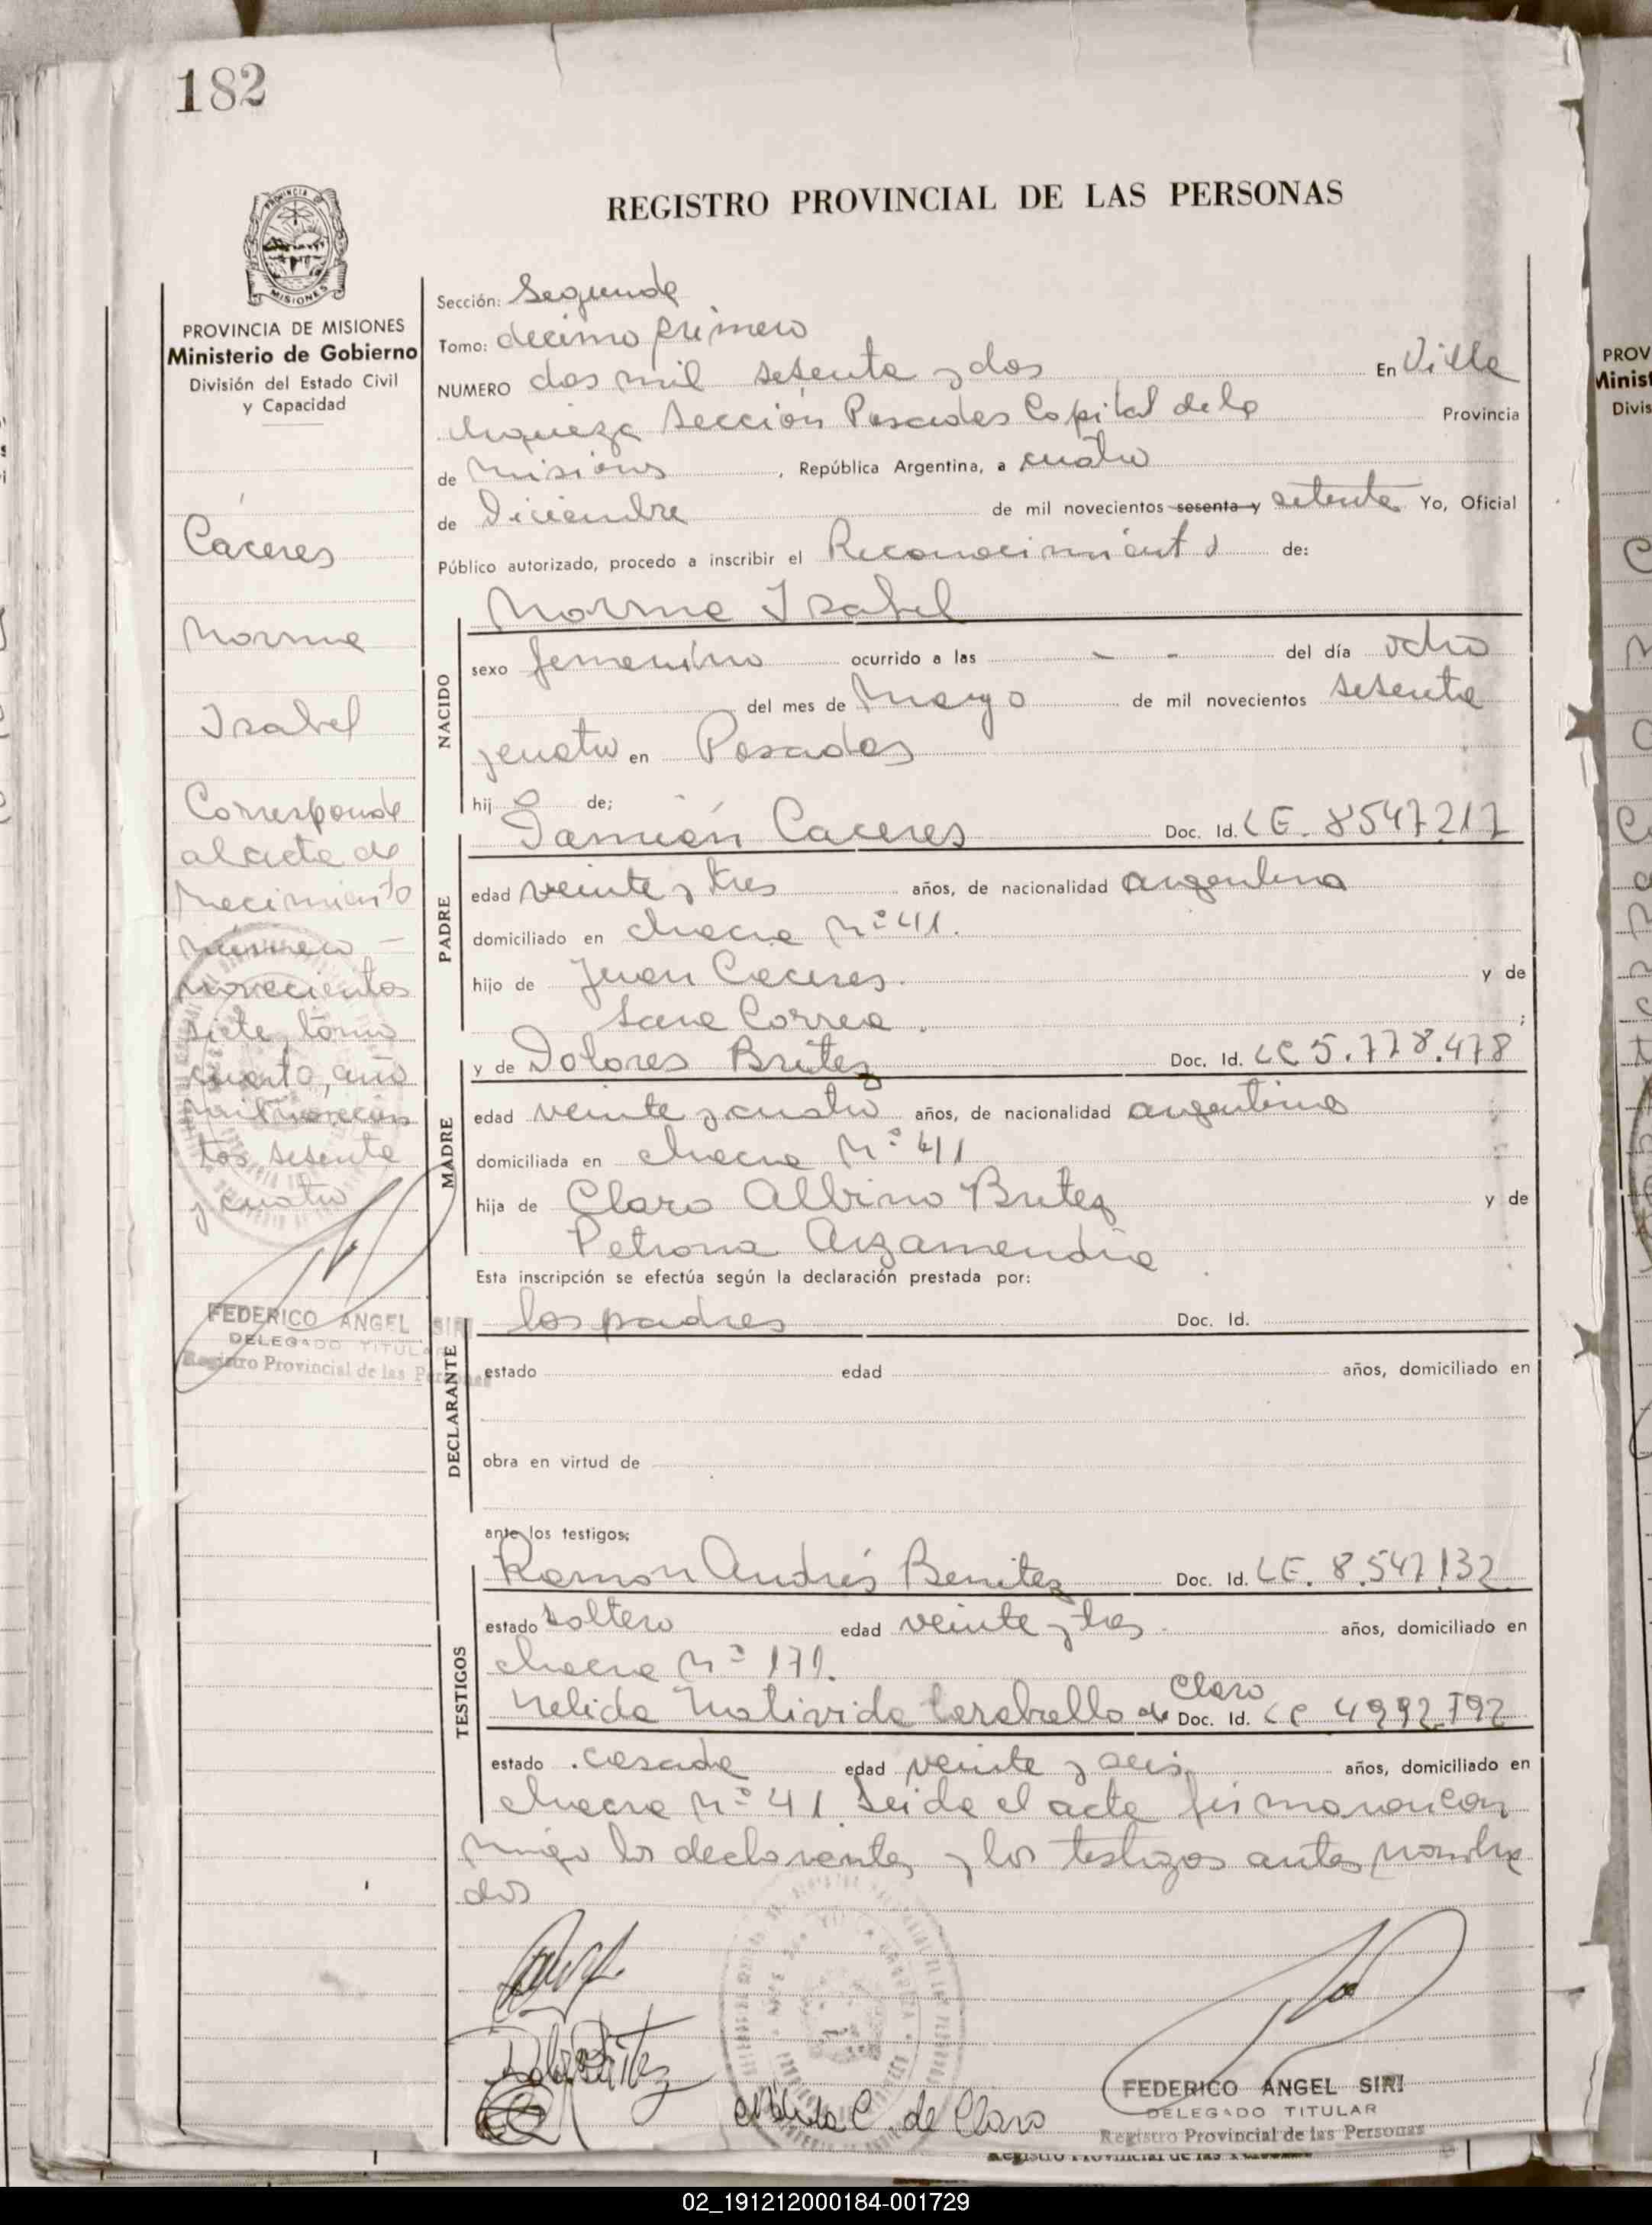 182
REGISTRO PROVINCIAL DE LAS PERSONAS
PROVINCIA DE MISIONES
Ministerio de Gobierno
División del Estado Civil
y Capacidad
Caceres
Norma
Isabel
Corresponde
al acta de
Nacimiento
número -
novecientos
siete, tomo
cuarto, año
mil novecien
tos sesenta
y cuatro
FEDERICO ANGEL SIRI
DELEGADO TITULAR
Registro Provincial de las Personas
Sección: Segunda
Tomo: decimo primero
NUMERO dos mil setenta y dos En Villa
Urquiza Sección Posadas Capital de la Provincia
de Misiones, República Argentina, a cuatro
de Diciembre de mil novecientos sesenta y setenta Yo, Oficial
Público autorizado, procedo a inscribir el Reconocimiento de:
Norma Isabel
NACIDO
sexo femenino ocurrido a las - - del día ocho
del mes de Mayo de mil novecientos sesenta
y cuatro en Posadas
hij a de;
PADRE
Damián Caceres Doc. Id. LE. 8547217
edad veinte y tres años, de nacionalidad argentina
domiciliado en chacra Nº 41.
hijo de Juan Caceres. y de
Correa.;
MADRE
y de Dolores Britez Doc. Id. LC 5.778.478
edad veinte y cuatro años, de nacionalidad argentina
domiciliada en chacra Nº 41
hija de Claro Albino Britez y de
Petrona Arzamendia
Esta inscripción se efectúa según la declaración prestada por:
DECLARANTE
los padres Doc. Id.
estado edad años, domiciliado en
obra en virtud de
ante los testigos;
TESTIGOS
Ramon Andrés Benitez Doc. Id. LE. 8.547.132
estado soltero edad veinte y tres años, domiciliado en
chacra Nº 171.
Nelida Nativida Carabello de Claro Doc. Id. LC 4992792
estado casada edad veinte y seis años, domiciliado en
chacra Nº 41 Leida el acta firmaron con
migo los declarantes y los testigos antes nombra
dos
Nelida C. de Claro
FEDERICO ANGEL SIRI
DELEGADO TITULAR
Registro Provincial de las Personas
02_191212000184-001729